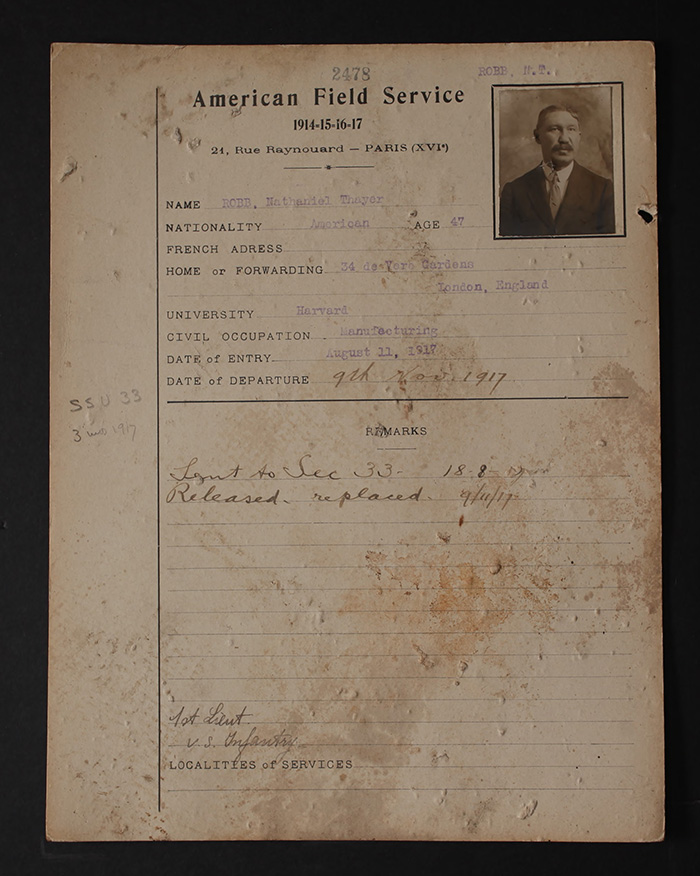 2478
ROBB, N.T.
American Field Service
1914-15-16-17
21, Rue Raynouard — PARIS (XVIe)
NAME ROBB, Nathaniel Thayer
NATIONALITY American AGE 47
FRENCH ADRESS
HOME or FORWARDING 34 de Vere Gardens
London, England
UNIVERSITY Harvard
CIVIL OCCUPATION Manufacturing
DATE of ENTRY August 11, 1917
DATE of DEPARTURE 9th Nov. 1917
SSU 33
3 mo 1917
REMARKS
Sent to Sec 33- 18-8-17
Released. replaced. 9/11/17
1st Lieut.
U.S. Infantry
LOCALITIES of SERVICES